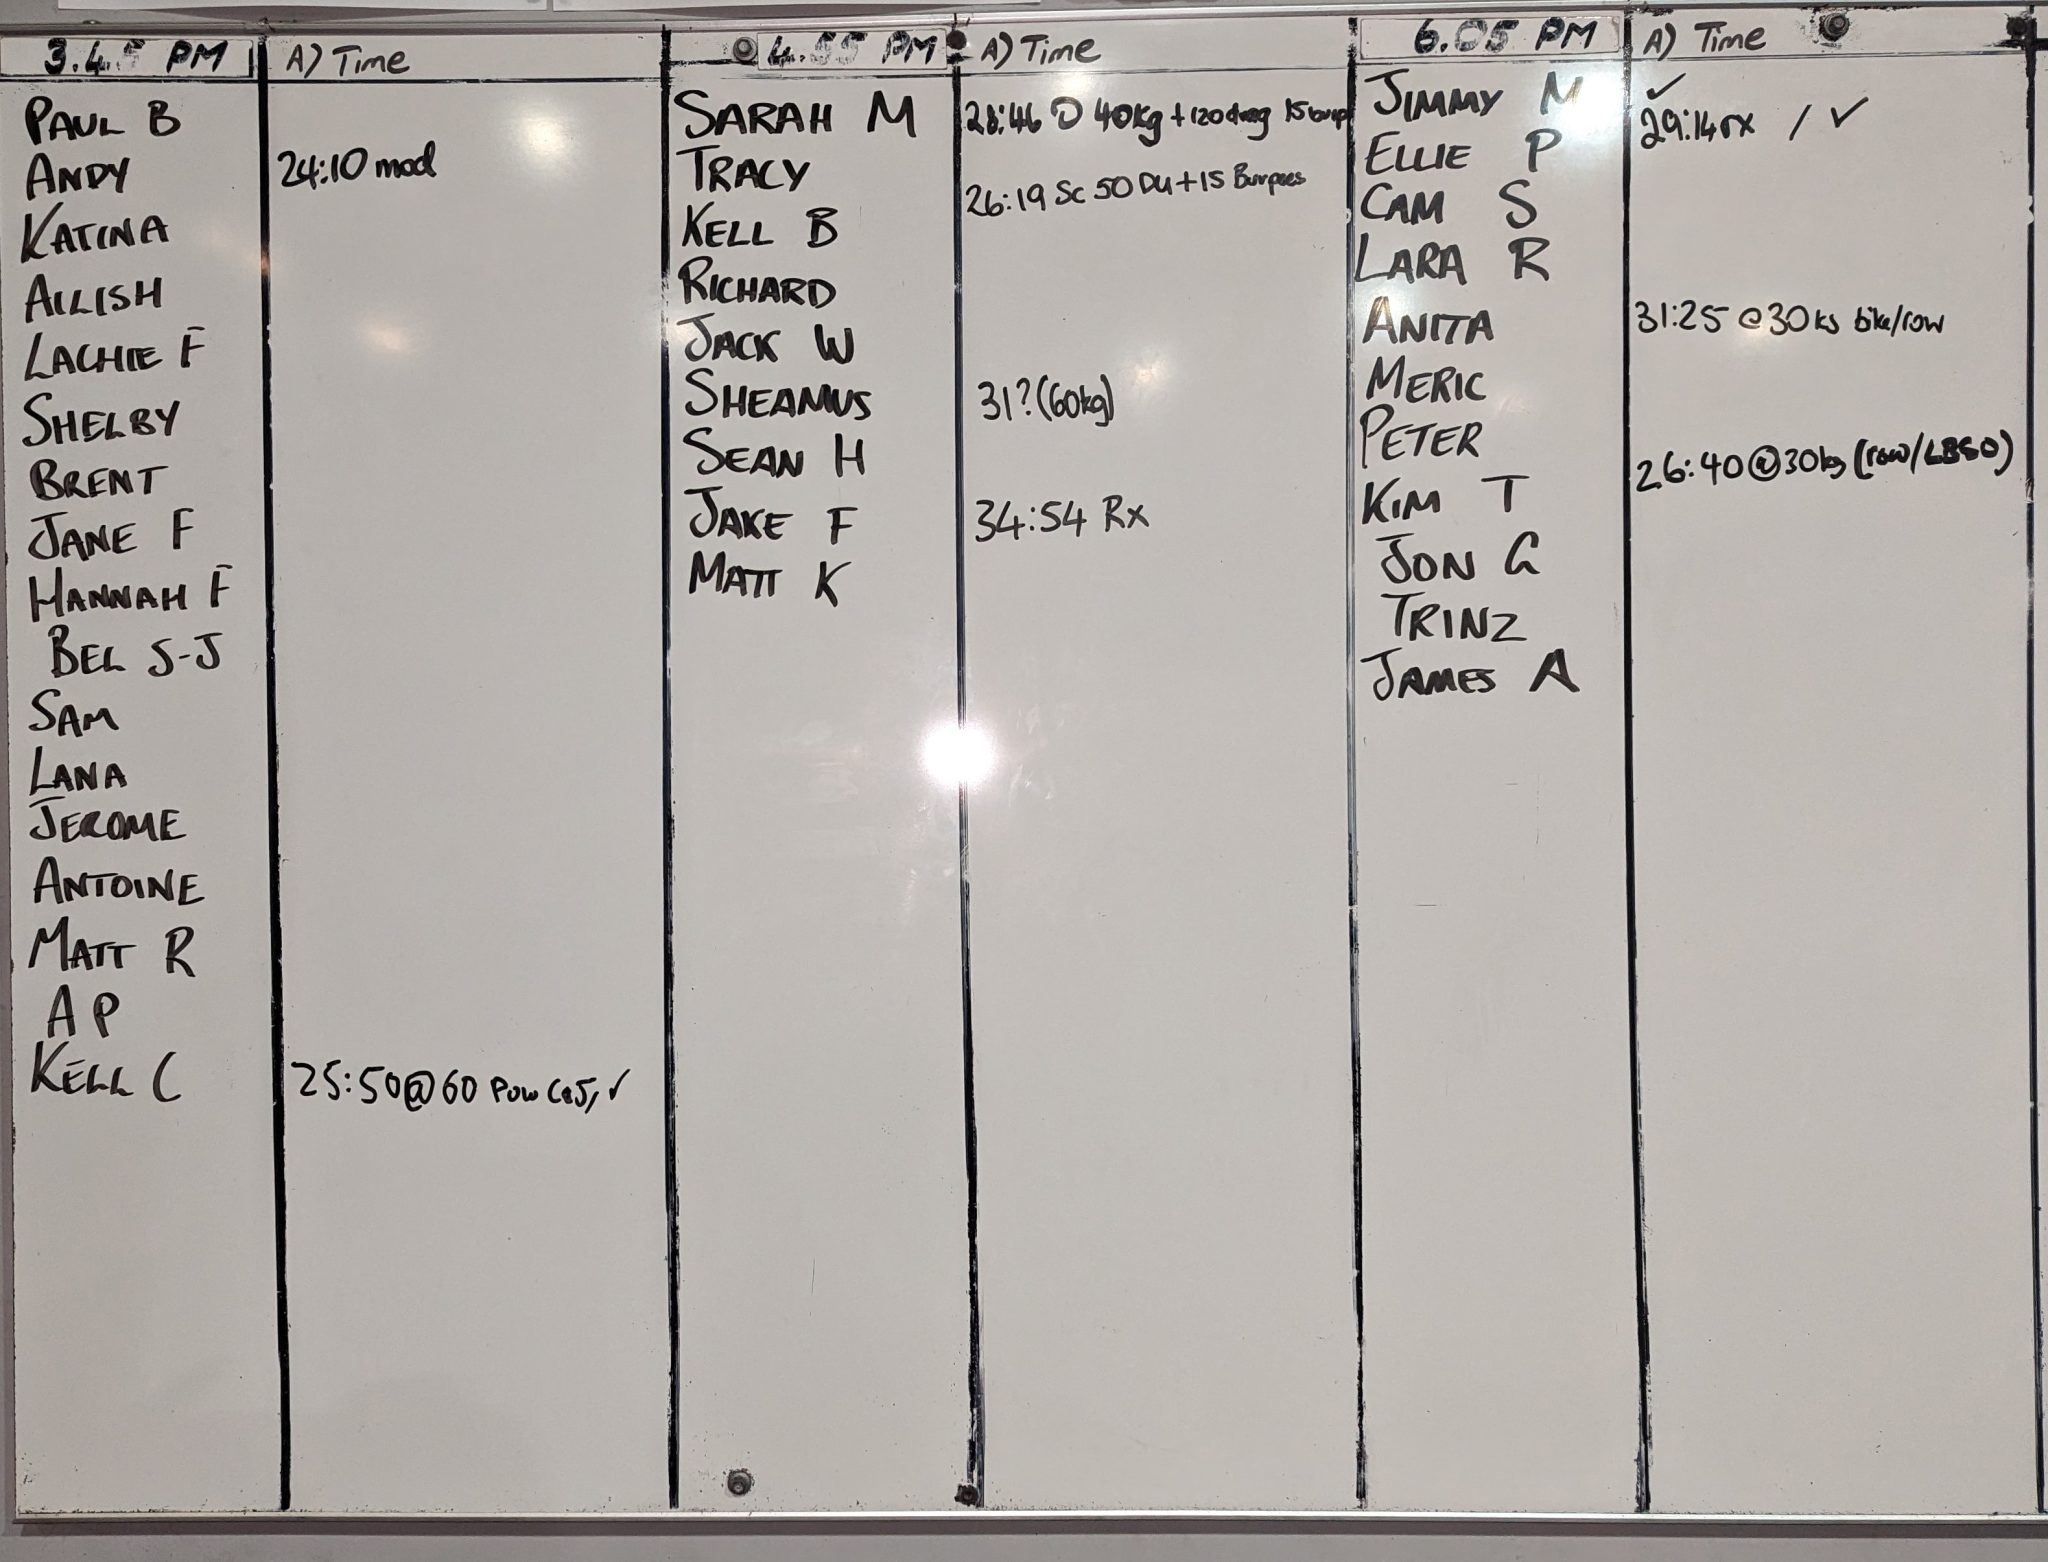 3.45 PM
A) Time
PAUL B
ANDY 24:10 mod
KATINA
AILISH
LACHIE F
SHELBY
BRENT
JANE F
HANNAH F
BEL S-J
SAM
LANA
JEROME
ANTOINE
MATT R
AP
KELL C 25:50@60 Pow
4.55 PM
A) Time
SARAH M 28:46 40kg + 120 15 burp
TRACY 26:19 Sc 50 DU + 15 Burpees
KELL B
RICHARD
JACK W
SHEAMUS 31? (60kg)
SEAN H
JAKE F 34:54 Rx
MATT K
6.05 PM
A) Time
JIMMY M ✓
29:14 rx / ✓
ELLIE P
CAM S
LARA R
ANITA 31:25 @30 ks bike/row
MERIC
PETER
26:40@30kg (row/
KIM T
JON G
TRINZ
JAMES A